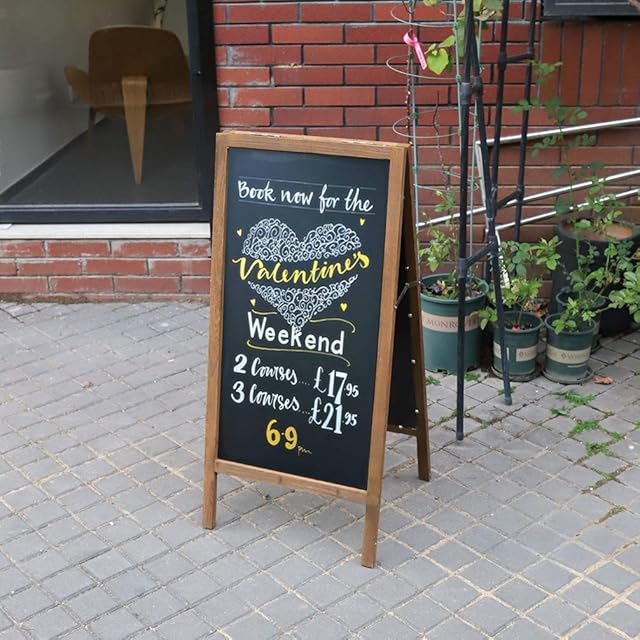 Book now for the
Valentine's
Weekend
2 Courses... £17.95
3 Courses... £21.95
6-9pm
MONRO